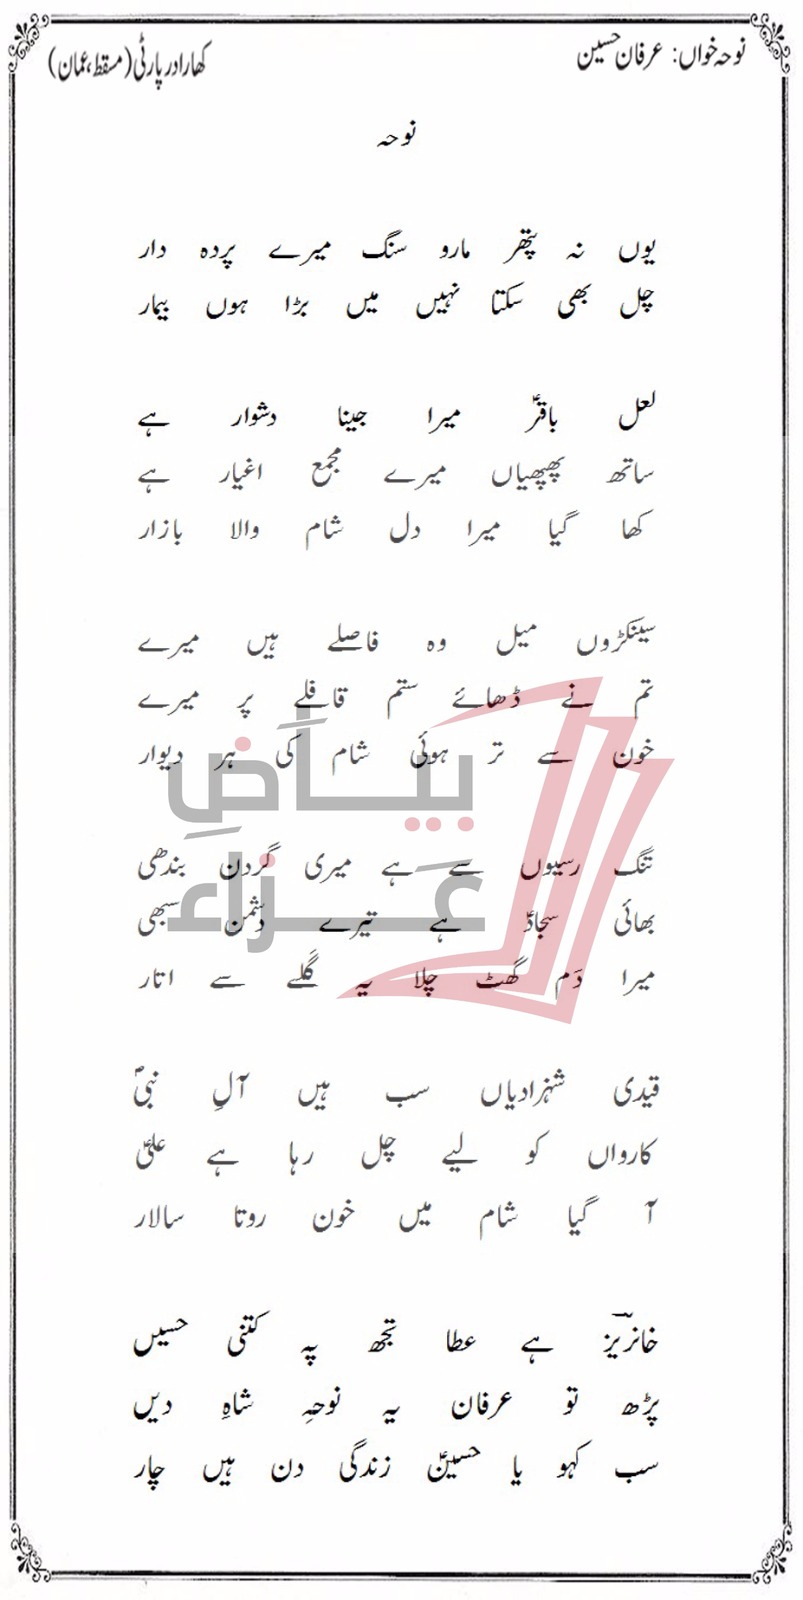 نوحہ خواں: عرفان حسین
کھارادر پارٹی (مسقط، عمان)
نوحہ
یوں نہ پتھر مارو سنگ میرے پردہ دار
چل بھی سکتا نہیں میں بڑا ہوں بیمار
لعل باقرؑ میرا جینا دشوار ہے
ساتھ پھپھیاں میرے مجمع اغیار ہے
کھا گیا میرا دل شام والا بازار
سینکڑوں میل وہ فاصلے ہیں میرے
تم نے ڈھائے ستم قافلے پر میرے
خون سے تر ہوئی شام کی ہر دیوار
تنگ رسیوں سے ہے میری گردن بندھی
بھائی سجادؑ ہے تیرے دشمن سبھی
میرا دَم گھٹ چلا یہ گلے سے اتار
قیدی شہزادیاں سب ہیں آلِ نبیؐ
کارواں کو لیے چل رہا ہے علیؑ
آ گیا شام میں خون روتا سالار
خانریزؔ ہے عطا تجھ پہ کتنی حسیں
پڑھ تو عرفان یہ نوحہِ شاہِ دیں
سب کہو یا حسینؑ زندگی دن ہیں چار
بیاضِ
عزاء